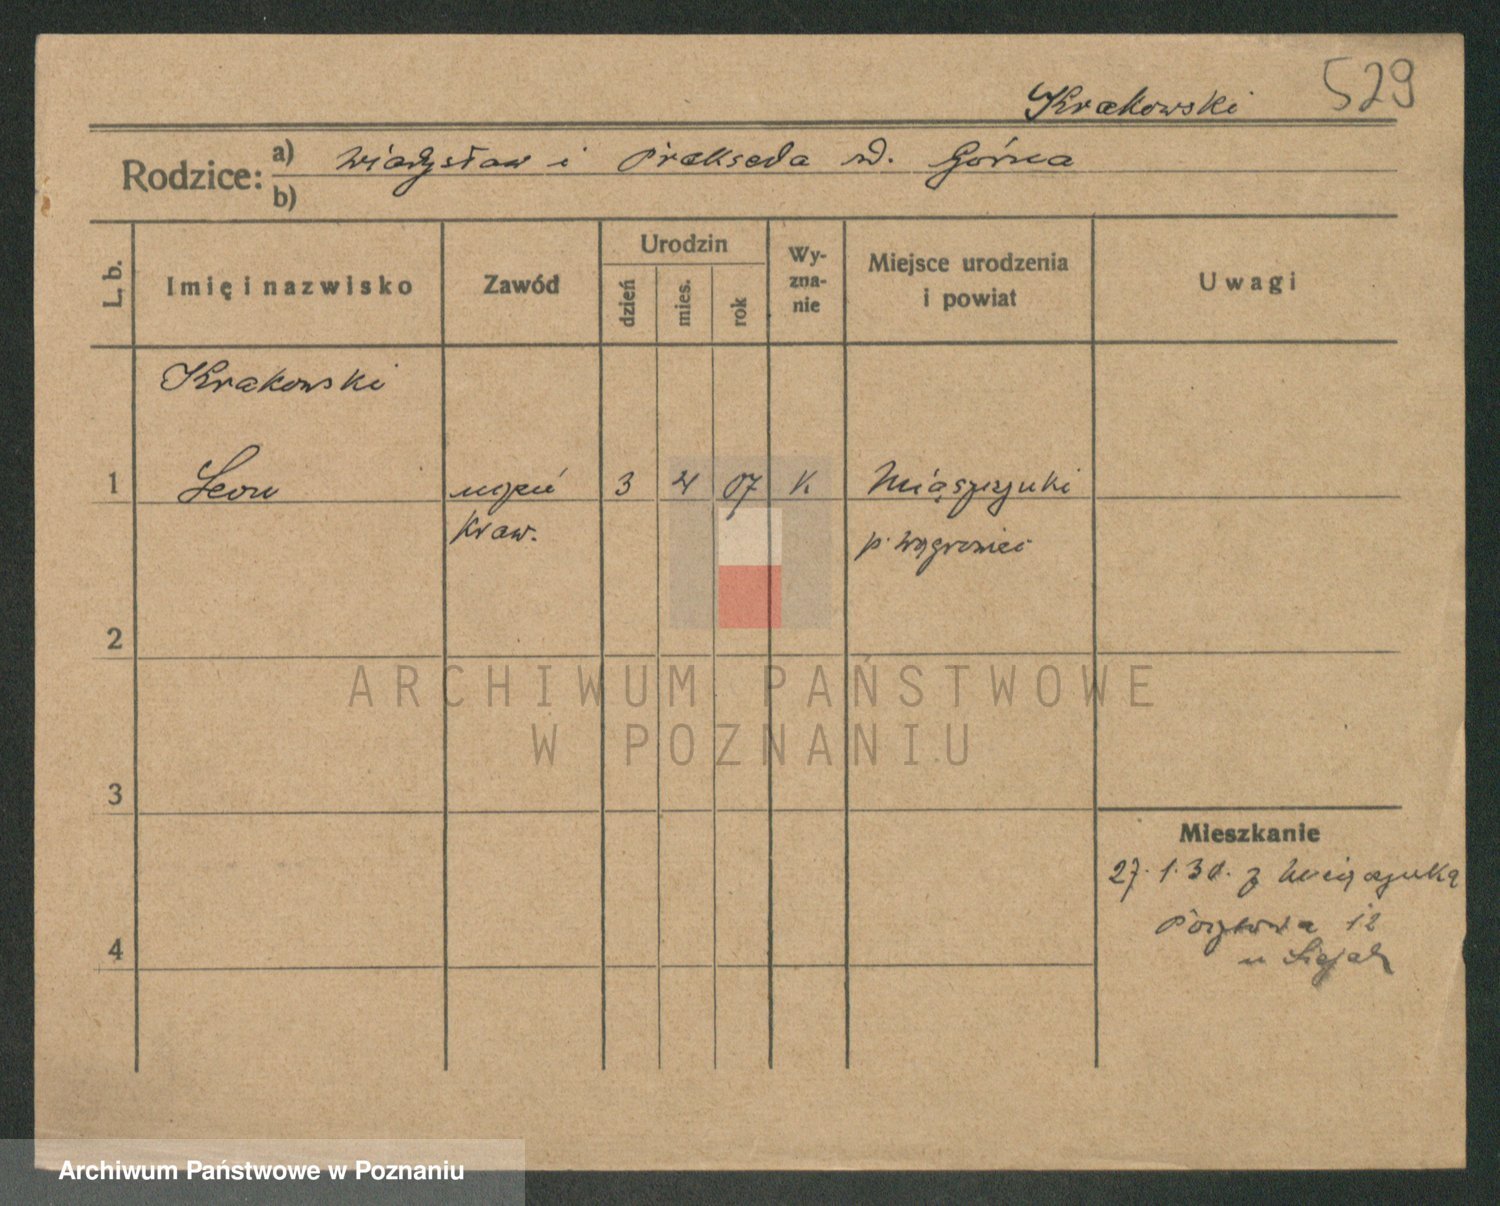 529
Krakowski
Rodzice: a) Władysław i Prakseda Górna
b)
L. b.
Imię i nazwisko
Zawód
Urodzin
dzień
mies.
rok
Wy-
zna-
nie
Miejsce urodzenia
i powiat
Uwagi
Krakowski
1 Leon uczeń 3 4 07 K
kraw.
p.
2
3
4
Mieszkanie
27.1.30. z
12
u
ARCHIWUM PAŃSTWOWE
W POZNANIU
Archiwum Państwowe w Poznaniu